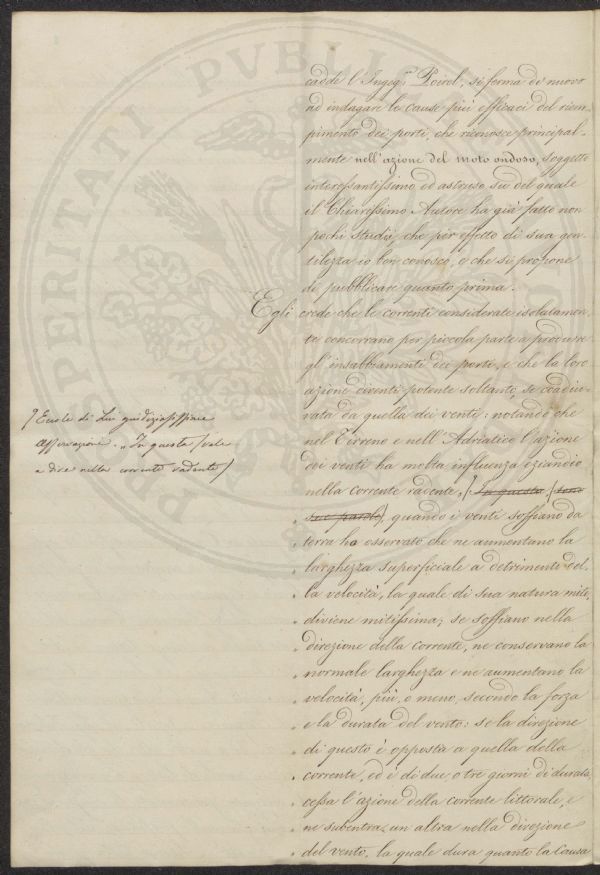 cadde l'Ingeg.r Poirel, si ferma di nuovo
ad indagare le cause più efficaci del riem-
pimento dei porti, che riconosce principal-
mente nell'azione del moto ondoso, soggetto
interessantissimo ed astruso su del quale
il Chiarissimo Autore ha già fatto non
pochi studii, che per effetto di sua gen-
tilezza io ben conosco, e che si propone
di pubblicare quanto prima.
Egli crede che le correnti considerate isolatamen-
te concorrano per piccola parte a produrre
gl'insabbiamenti dei porti, e che la loro
azione diventi potente soltanto, se coadiu-
vata da quella dei venti: notando che
nel Tirreno e nell'Adriatico l'azione
dei venti ha molta influenza eziandio
nella corrente radente. (In questa (sono
sue parole), quando i venti soffiano da
„ terra ho osservato che ne aumentano la
„ larghezza superficiale a detrimento del-
„ la velocità, la quale di sua natura mite,
„ diviene mitissima; se soffiano nella
„ direzione della corrente, ne conservano la
„ normale larghezza e ne aumentano la
„ velocità, più, o meno, secondo la forza
„ e la durata del vento: se la direzione
„ di questo è opposta a quella della
„ corrente, ed è di due o tre giorni di durata,
„ cessa l'azione della corrente littorale, e
„ ne subentra un altra nella direzione
„ del vento, la quale dura quanto la causa
Eccole di Lui giudiziosissime
osservazioni. „In questa (vale
a dire nella corrente radente)
PERITATI PVBLI